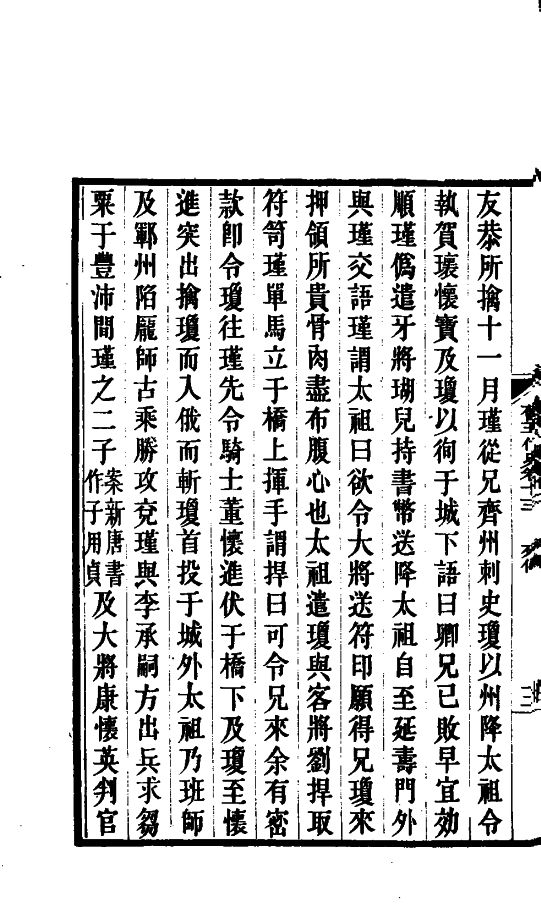 友恭所擒十一月瑾從兄齊州刺史瓊以州降太祖令
執賀瓌懷寶及瓊以徇于城下語曰卿兄已敗早宜効
順瑾僞遣牙將瑚兒持書幣送降太祖自至延壽門外
與瑾交語瑾謂太祖曰欲令大將送符印願得兄瓊來
押領所貴骨肉盡布腹心也太祖遣瓊與客將劉捍取
符笥瑾單馬立于橋上揮手謂捍曰可令兄來余有密
款卽令瓊往瑾先令騎士董懷進伏于橋下及瓊至懷
進突出擒瓊而入俄而斬瓊首投于城外太祖乃班師
及鄆州陷龐師古乘勝攻兗瑾與李承嗣方出兵求芻
粟于豐沛間瑾之二子案新唐書作子用貞及大將康懷英判官